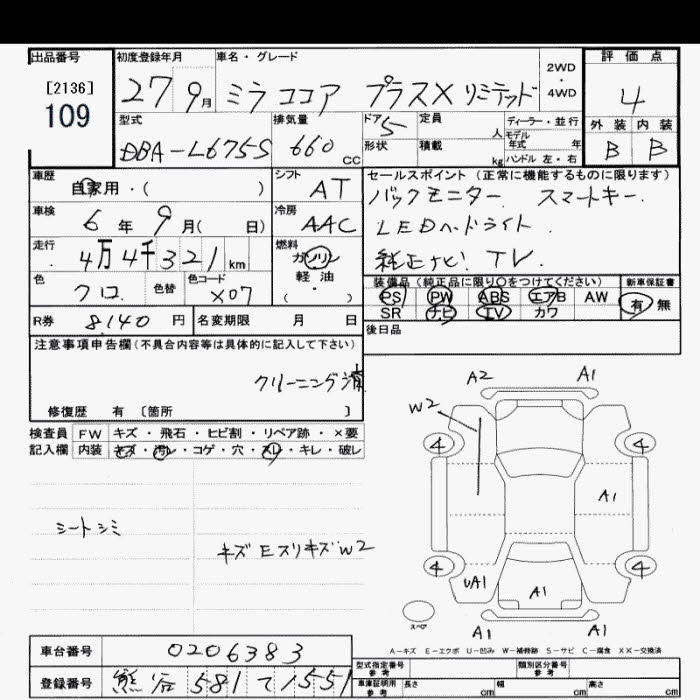 出品番号 初度登録年月 車名・グレード 2WD・4WD 評価点
[2136]
109
27 9月 ミラ ココア プラスX リミテッド 4
型式 排気量 ドア 定員 人 ディーラー・並行 外装 内装
DBA-L675S 660 cc 5 形状 積載 kg モデル年式 年 ハンドル 左・右 B B
車歴 自家用・( ) シフト AT セールスポイント (正常に機能するものに限ります)
バックモニター. スマートキー.
車検 6年 9月( 日) 冷房 AAC LEDヘッドライト.
走行 4万4千321km 燃料 ガソリン 軽油 ・( ) 純正ナビ. TV.
色 クロ 色替 色コード X07 装備品 (純正品に限り○をつけてください) 新車保証書
PS PW ABS エアB AW 有 無
R券 8140円 名変期限 月 日 SR ナビ TV カワ
後日品
注意事項申告欄(不具合内容等は具体的に記入して下さい)
クリーニング済
修復歴 有 〔箇所 〕
検査員 FW キズ・飛石・ヒビ割・リペア跡・×要
記入欄 内装 キズ・汚レ・コゲ・穴・スレ・キレ・破レ
シートシミ
キズ Eスリキズ W2
A2 A1
W2
4 4
A1
4 4
UA1 A1
スペア
A1 A1
A-キズ E-エクボ U-凹み W-補修跡 S-サビ C-腐食 XX-交換済
車台番号 0206383
型式指定番号 参考 類別区分番号 参考
登録番号 熊谷 581 て 1551
車庫証明用 参考 長さ cm 幅 cm 高さ cm